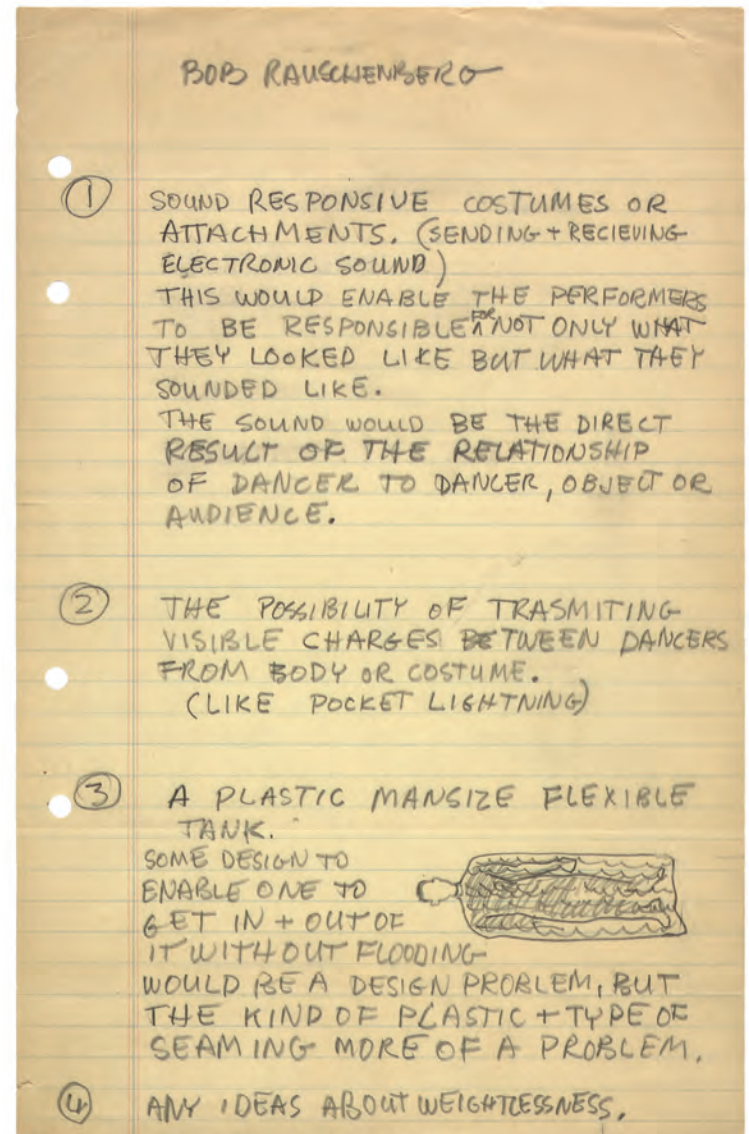 BOB RAUSCHENBERG
① SOUND RESPONSIVE COSTUMES OR
ATTACHMENTS. (SENDING + RECIEVING
ELECTRONIC SOUND)
THIS WOULD ENABLE THE PERFORMERS
TO BE RESPONSIBLE FOR NOT ONLY WHAT
THEY LOOKED LIKE BUT WHAT THEY
SOUNDED LIKE.
THE SOUND WOULD BE THE DIRECT
RESULT OF THE RELATIONSHIP
OF DANCER TO DANCER, OBJECT OR
AUDIENCE.
② THE POSSIBILITY OF TRASMITING
VISIBLE CHARGES BETWEEN DANCERS
FROM BODY OR COSTUME.
(LIKE POCKET LIGHTNING)
③ A PLASTIC MANSIZE FLEXIBLE
TANK.
SOME DESIGN TO
ENABLE ONE TO
GET IN + OUT OF
IT WITHOUT FLOODING
WOULD BE A DESIGN PROBLEM, BUT
THE KIND OF PLASTIC + TYPE OF
SEAMING MORE OF A PROBLEM.
④ ANY IDEAS ABOUT WEIGHTLESSNESS.